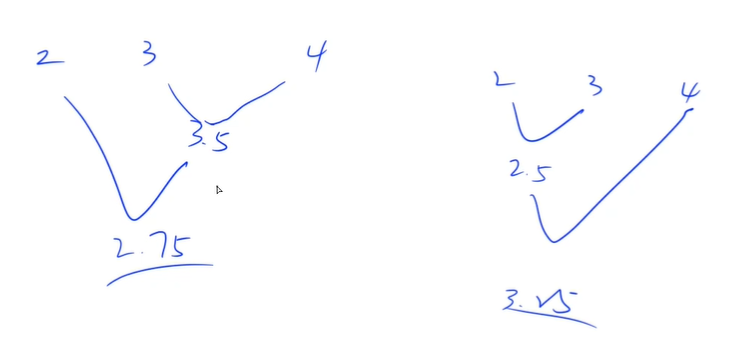 2 3 4
3.5
2.75
2 3 4
2.5
3.25